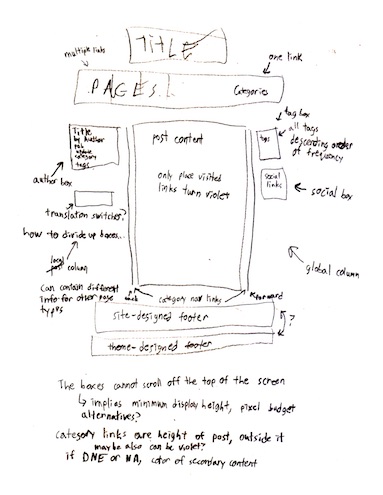 TITLE
multiple links
one link
PAGES
Categories
tag box
all tags
descending order
of frequency
Title
by Author
pub
update
category
tags
post content
tags
only place visited
links turn violet
social
links
social box
author box
translation switcher?
how to divide up boxes...
local
post column
global column
can contain different
info for other page
types
back
category nav links
forward
site-designed footer
?
theme-designed footer
The boxes cannot scroll off the top of the screen
↳ implies minimum display height, pixel budget
alternatives?
category links are height of post, outside it
maybe also can be violet?
if DNE or NA, color of secondary content